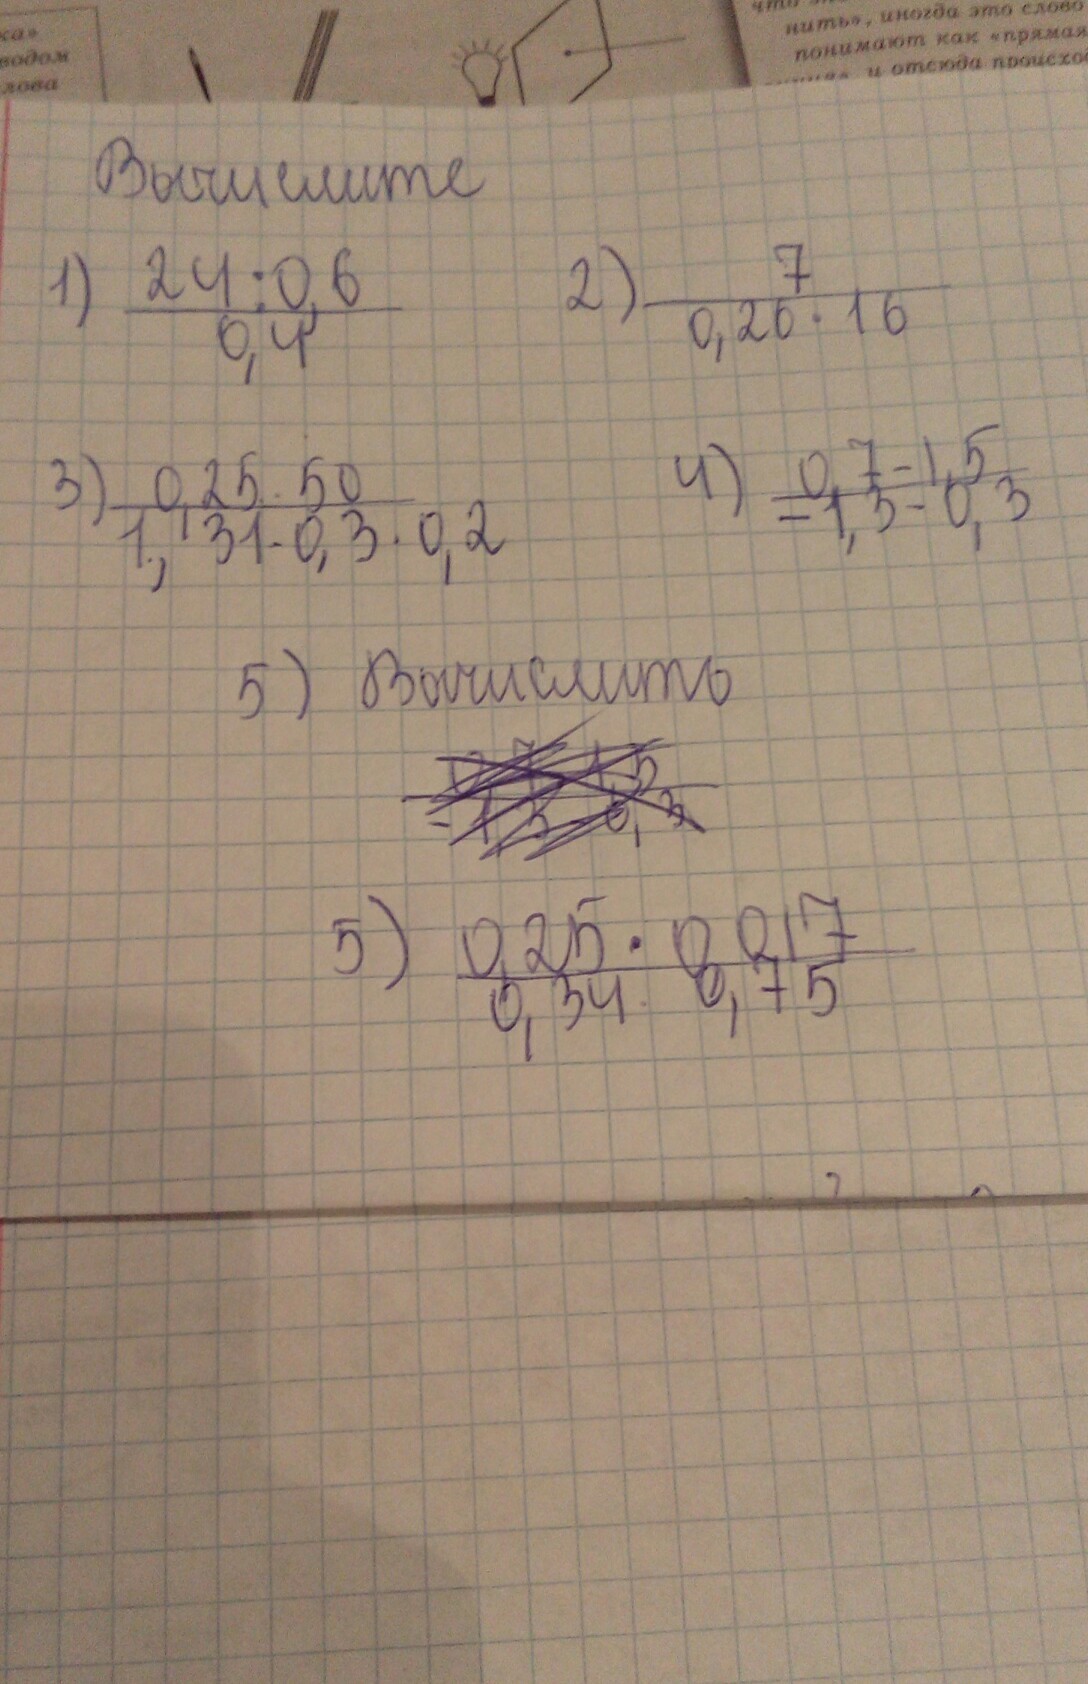 ка»
водом
лова
нить», иногда это слово
понимают как «прямая
и отсюда происхо
Вычислите
1) 24:0,6
0,4
2) 7
0,26·16
3) 0,25·50
1,31·0,3·0,2
4) 0,7-1,5
-1,3-0,3
5) Вычислить
5) 0,25·0,017
0,34·0,75